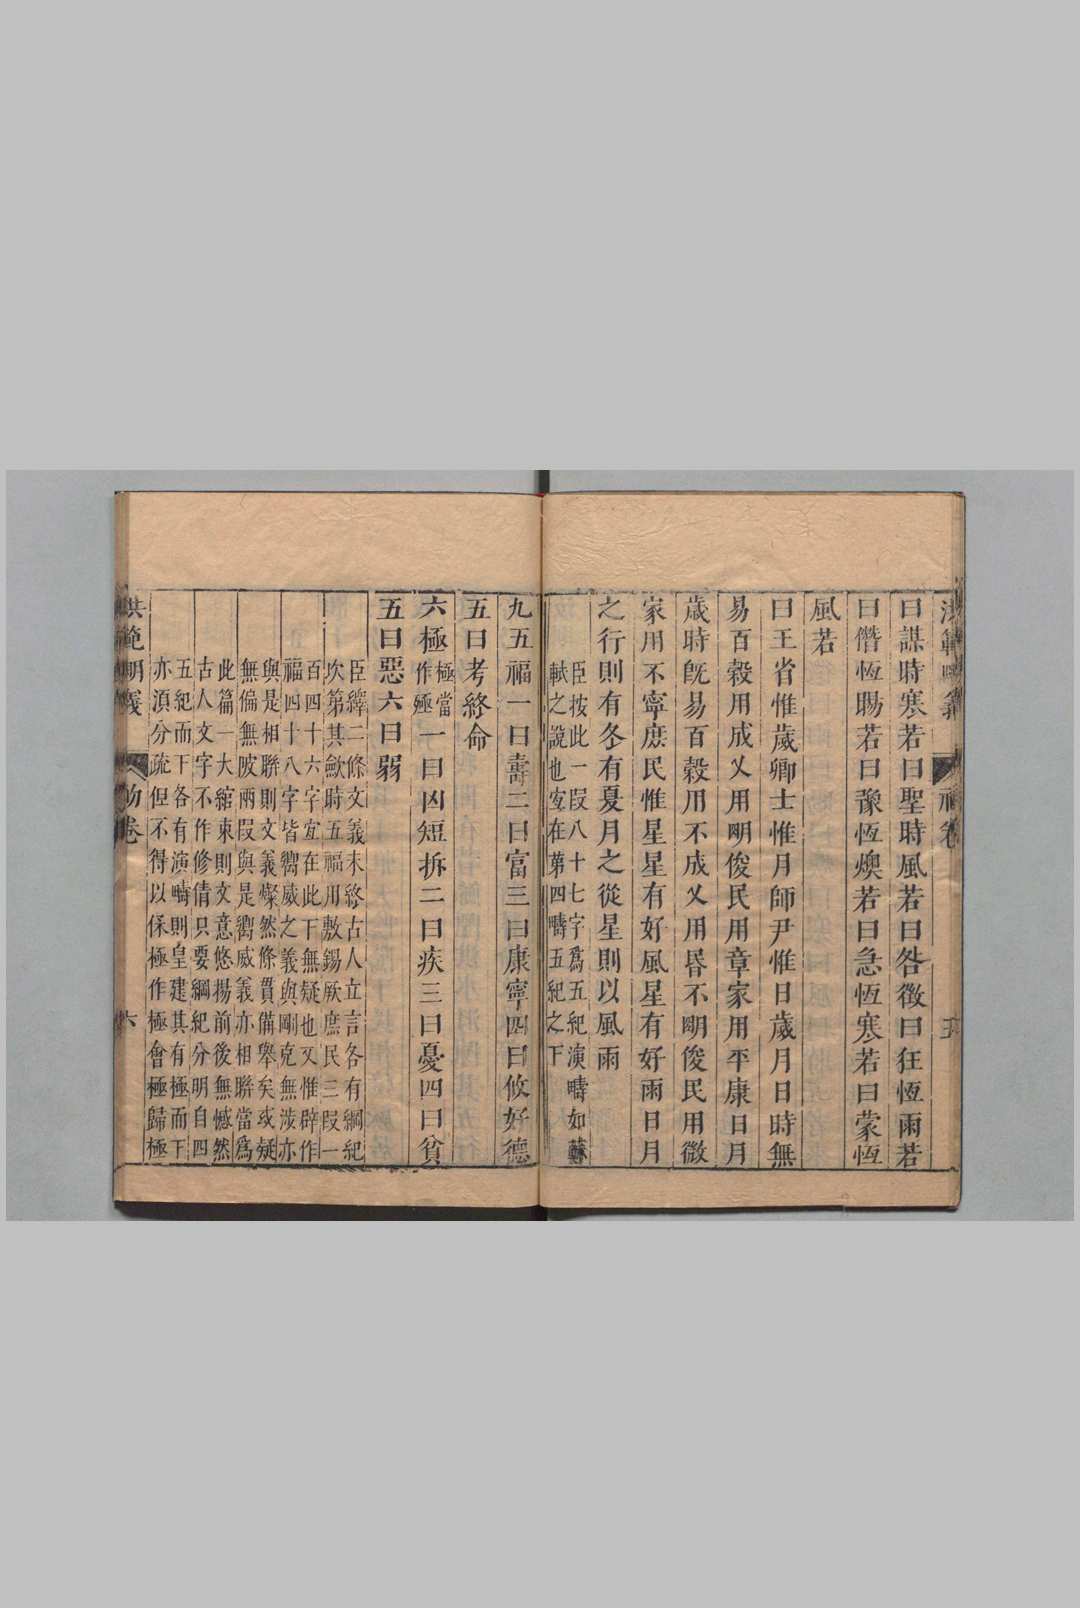 洪範明義 初卷 五
曰謀時寒若曰聖時風若曰咎徵曰狂恆雨若
曰僭恆暘若曰豫恆燠若曰急恆寒若曰蒙恆
風若
曰王省惟歲卿士惟月師尹惟日歲月日時無
易百穀用成乂用明俊民用章家用平康日月
歲時旣易百穀用不成乂用昬不明俊民用微
家用不寧庶民惟星星有好風星有好雨日月
之行則有冬有夏月之從星則以風雨
臣按此一段八十七字爲五紀演疇如蘇
軾之說也宐在第四疇五紀之下
九五福一曰壽二曰富三曰康寧四曰攸好德
五曰考終命
六極極當作殛一曰凶短折二曰疾三曰憂四曰貧
五曰惡六曰弱
臣繹二條文義未終古人立言各有綱紀
次第其歛時五福用敷錫厥庶民三段一
百四十六字宐在此下無疑也又惟辟作
福四十八字皆嚮威之義與剛克無涉亦
與是相聯則文義燦然條貫備舉矣或疑
無偏無陂兩段與是嚮威義亦相聯當爲
此篇一大綰束則文意悠揚前後無憾然
古人文字不作修倩只要綱紀分明自四
五紀而下各有演疇則皇建其有極而下
亦湏分疏但不得以保極作極會極歸極
洪範明義 初卷 六